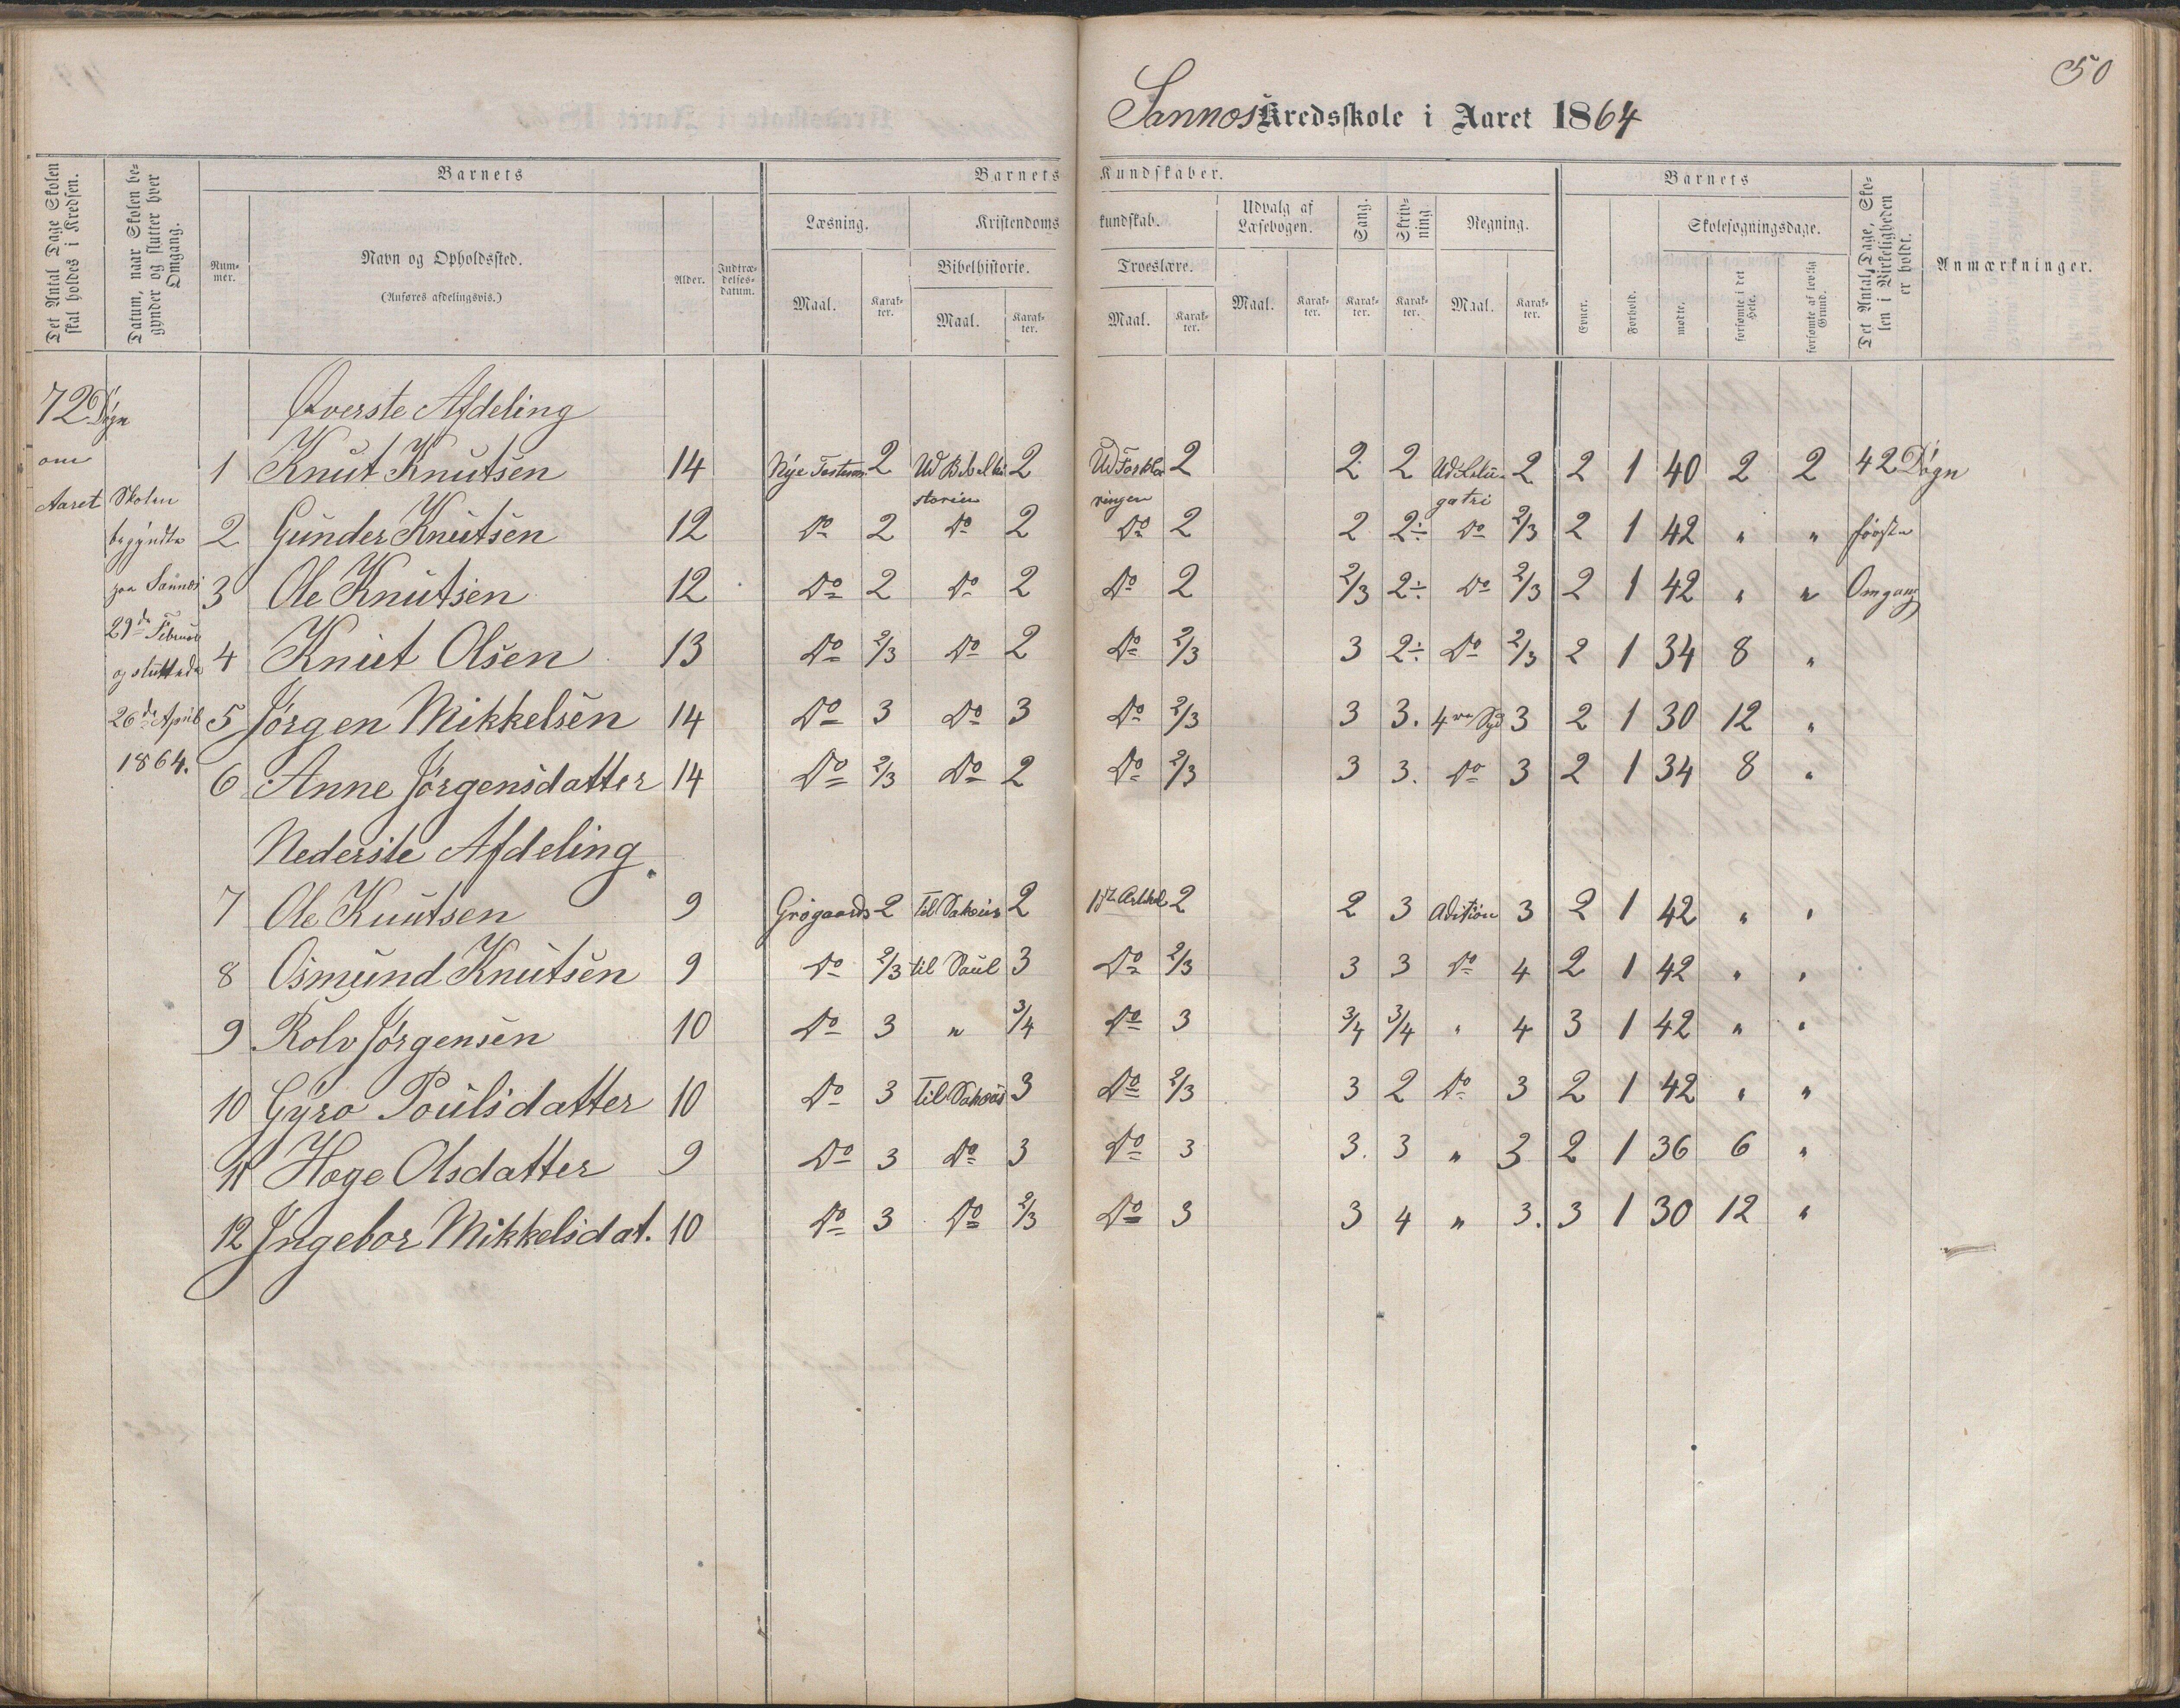 50
Sannos Kredsskole i Aaret 1864
Det Antal Dage Skolen skal holdes i Kredsen.
Datum, naar Skolen begynder og slutter hver Omgang.
Barnets
Nummer.
Navn og Opholdssted.
(Anføres afdelingsvis.)
Alder.
Indtrædelsesdatum.
Barnets Kundskaber.
Læsning.
Maal. Karakter.
Kristendomskundskab.
Bibelhistorie.
Maal. Karakter.
Troeslære.
Maal. Karakter.
Udvalg af Læsebogen.
Maal. Karakter.
Sang.
Karakter.
Skrivning.
Karakter.
Regning.
Maal. Karakter.
Barnets
Evner.
Forhold.
Skolesøgningsdage.
mødte.
forsømte i det Hele.
forsømte af lovlig Grund.
Det Antal Dage, Skolen i Virkeligheden er holdt.
Anmærkninger.
72 Døgn
om
Aaret
Skolen
begyndte
paa Sannes
29de Februar
og sluttede
26de April
1864.
Øverste Afdeling
1 Knut Knutsen 14 Nye Testam 2 Ud Bibelhistorien 2 Ud Forklaringen 2 2 2 2 2 1 40 2 2 42 Døgn
2 Gunder Knutsen 12 Do 2 Do 2 Do 2 2 2÷ Do 2/3 2 1 42 " " første
3 Ole Knutsen 12 Do 2 Do 2 Do 2 2/3 2÷ Do 2/3 2 1 42 " " Omgang
4 Knut Olsen 13 Do 2/3 Do 2 Do 2/3 3 2÷ Do 2/3 2 1 34 8 "
5 Jörgen Mikkelsen 14 Do 3 Do 3 Do 2/3 3 3. 3 2 1 30 12 "
6 Anne Jörgensdatter 14 Do 2/3 Do 2 Do 2/3 3 3. Do 3 2 1 34 8 "
Nederste Afdeling.
7 Ole Knutsen 9 Grøgaards 2 2 2 2 3 Adition 3 2 1 42 " "
8 Osmund Knutsen 9 Do 2/3 til Saul 3 Do 2/3 3 3 Do 4 2 1 42 " "
9 Rolv Jörgensen 10 Do 3 " 3/4 Do 3 3/4 3/4 " 4 3 1 42 " "
10 Gyro Poulsdatter 10 Do 3 3 Do 2/3 3 2 Do 3 2 1 42 " "
11 Hoge Olsdatter 9 Do 3 Do 3 Do 3 3. 3 " 3 2 1 36 6 "
12 Ingebor Mikkelsdat. 10 Do 3 Do 2/3 Do 3 3 4 " 3. 3 1 30 12 "